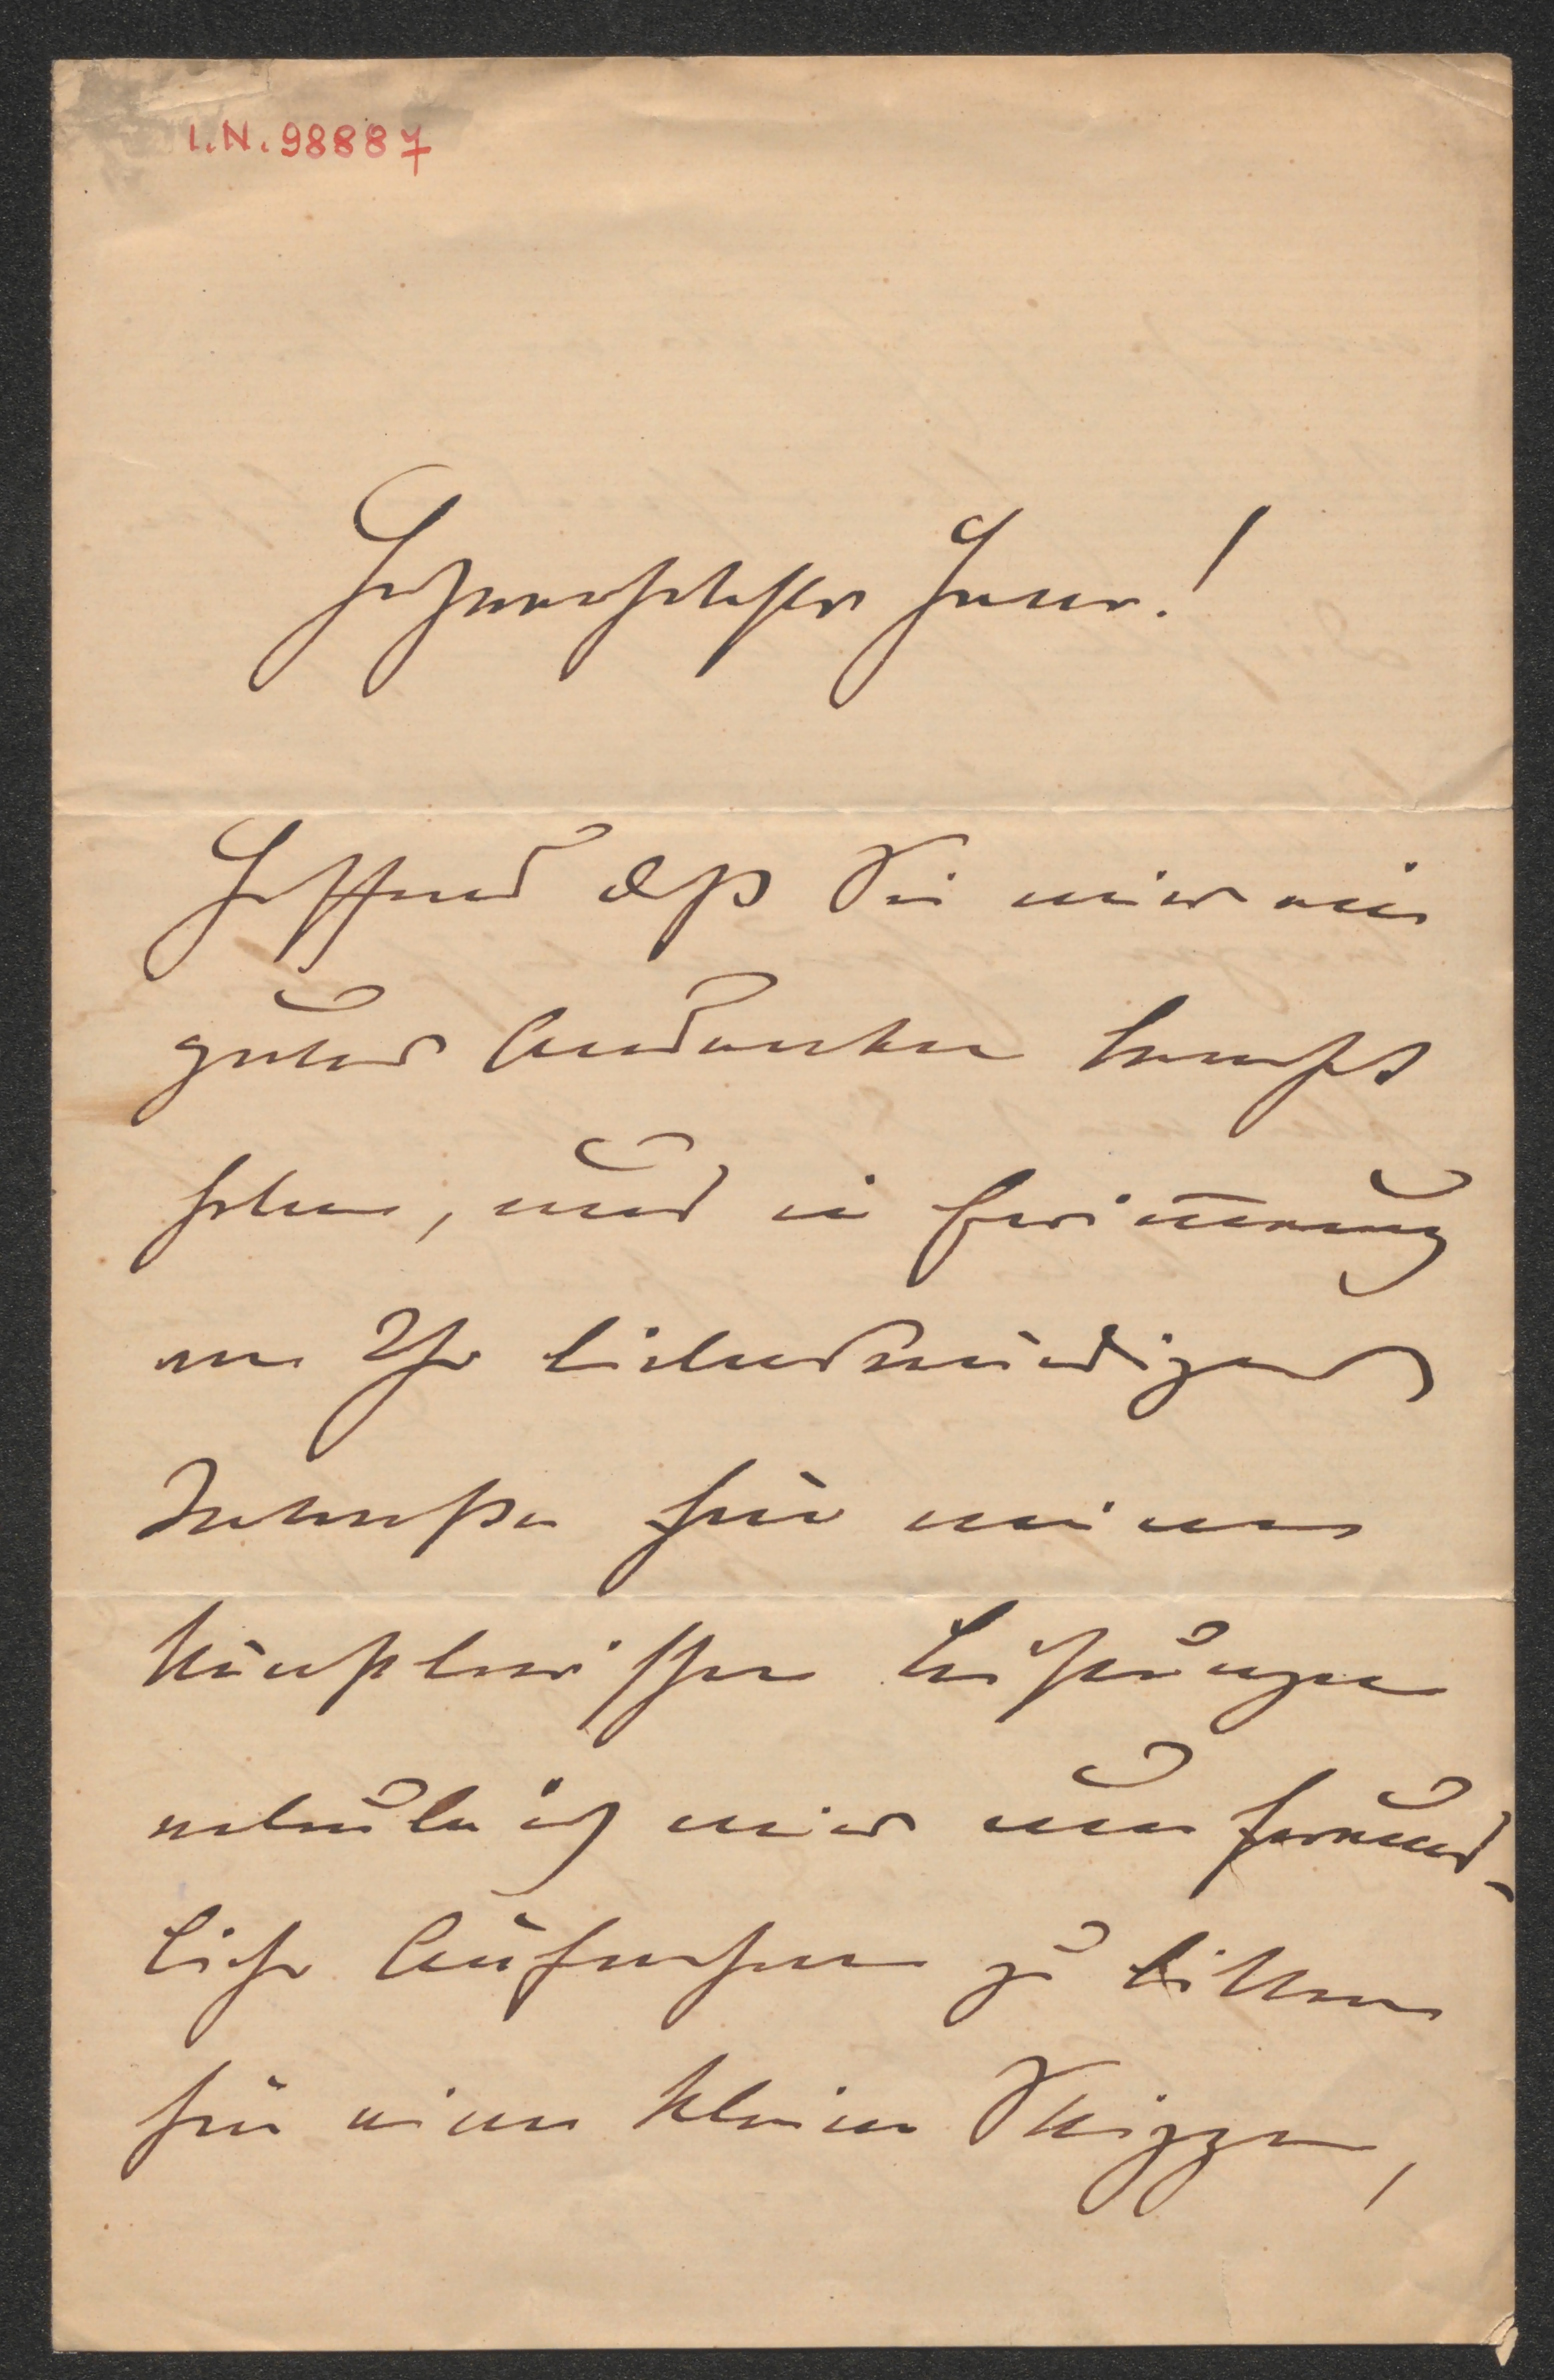 I.N. 98887
Hochverehrtester Herr!
Hoffend dß Sie mir ein
gutes Andenken bewahrt
haben, und in Erinnerung
an Ihr liebenswürdiges
Interesse für meine
künstlerischen Leistungen
erlaube ich mir um freund-
liche Aufnahme zu bitten
für eine kleine Skizze,